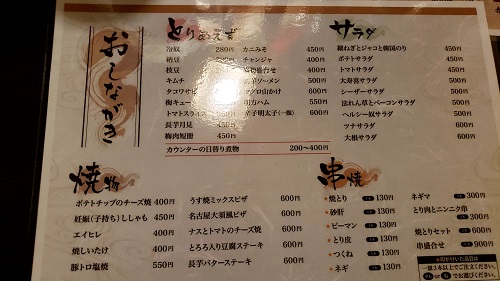 おしながき
とりあえず
冷奴 280円
納豆
枝豆
キムチ
タコワサビ
梅キュー
トマトスライス
長芋月見 450円
梅肉短冊 450円
カニみそ 450円
チャンジャ 400円
400円
ソーメン 300円
マグロ山かけ 600円
ハム 550円
辛子明太子(一腹) 600円
カウンターの日替り煮物 200〜400円
サラダ
織ねぎとジャコと韓国のり 450円
ポテトサラダ 450円
トマトサラダ 450円
大寿喜サラダ 500円
シーザーサラダ 500円
法れん草とベーコンサラダ 500円
ヘルシー奴サラダ 500円
ツナサラダ 500円
大根サラダ 500円
焼物
ポテトチップのチーズ焼 400円
妊娠(子持ち)ししゃも 450円
エイヒレ 400円
焼しいたけ 400円
豚トロ塩焼 550円
うす焼ミックスピザ 600円
名古屋大須風ピザ 500円
ナスとトマトのチーズ焼 600円
とろろ入り豆腐ステーキ 600円
長芋バターステーキ 600円
串焼
焼とり 130円
砂肝 130円
ピーマン 130円
とり皮 130円
つくね 130円
ネギ 130円
ネギマ 300円
とり肉とニンニク串 300円
焼とりセット 600円
串盛合せ 900円
★印が付いた品目は
一種3本以上でご注文ください。
でお選びください。